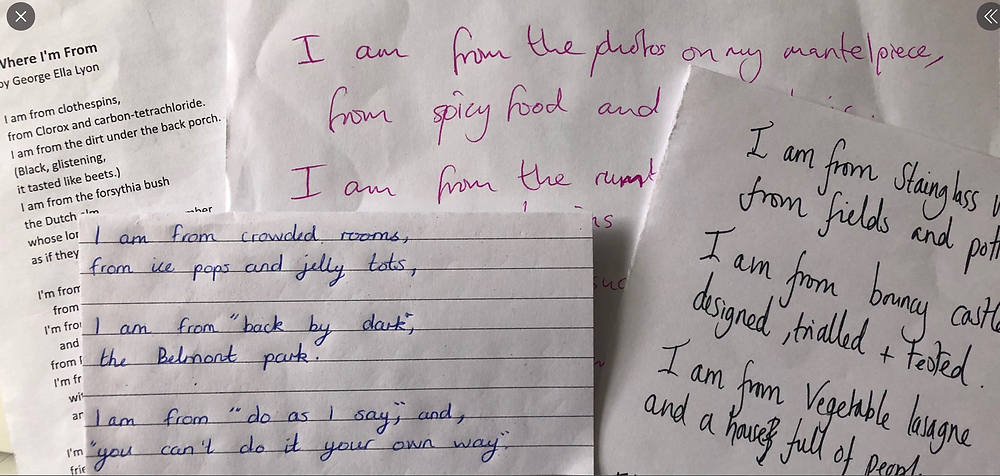 Where I'm From
by George Ella Lyon
I am from clothespins,
from Clorox and carbon-tetrachloride.
I am from the dirt under the back porch.
(Black, glistening,
it tasted like beets.)
I am from the forsythia bush
the Dutch
whose
as if they
I'm from
from
I'm
and
from
I'm
I'm
I am from the photos on my mantelpiece,
from spicy food and
I am from the
I am from crowded rooms,
from ice pops and jelly tots,
I am from "back by dark",
the Belmont park.
I am from "do as I say", and,
"you can't do it your own way".
I am from Stainglass
from fields and
I am from bouncy
designed, trialled + tested.
I am from Vegetable lasagne
and a house full of